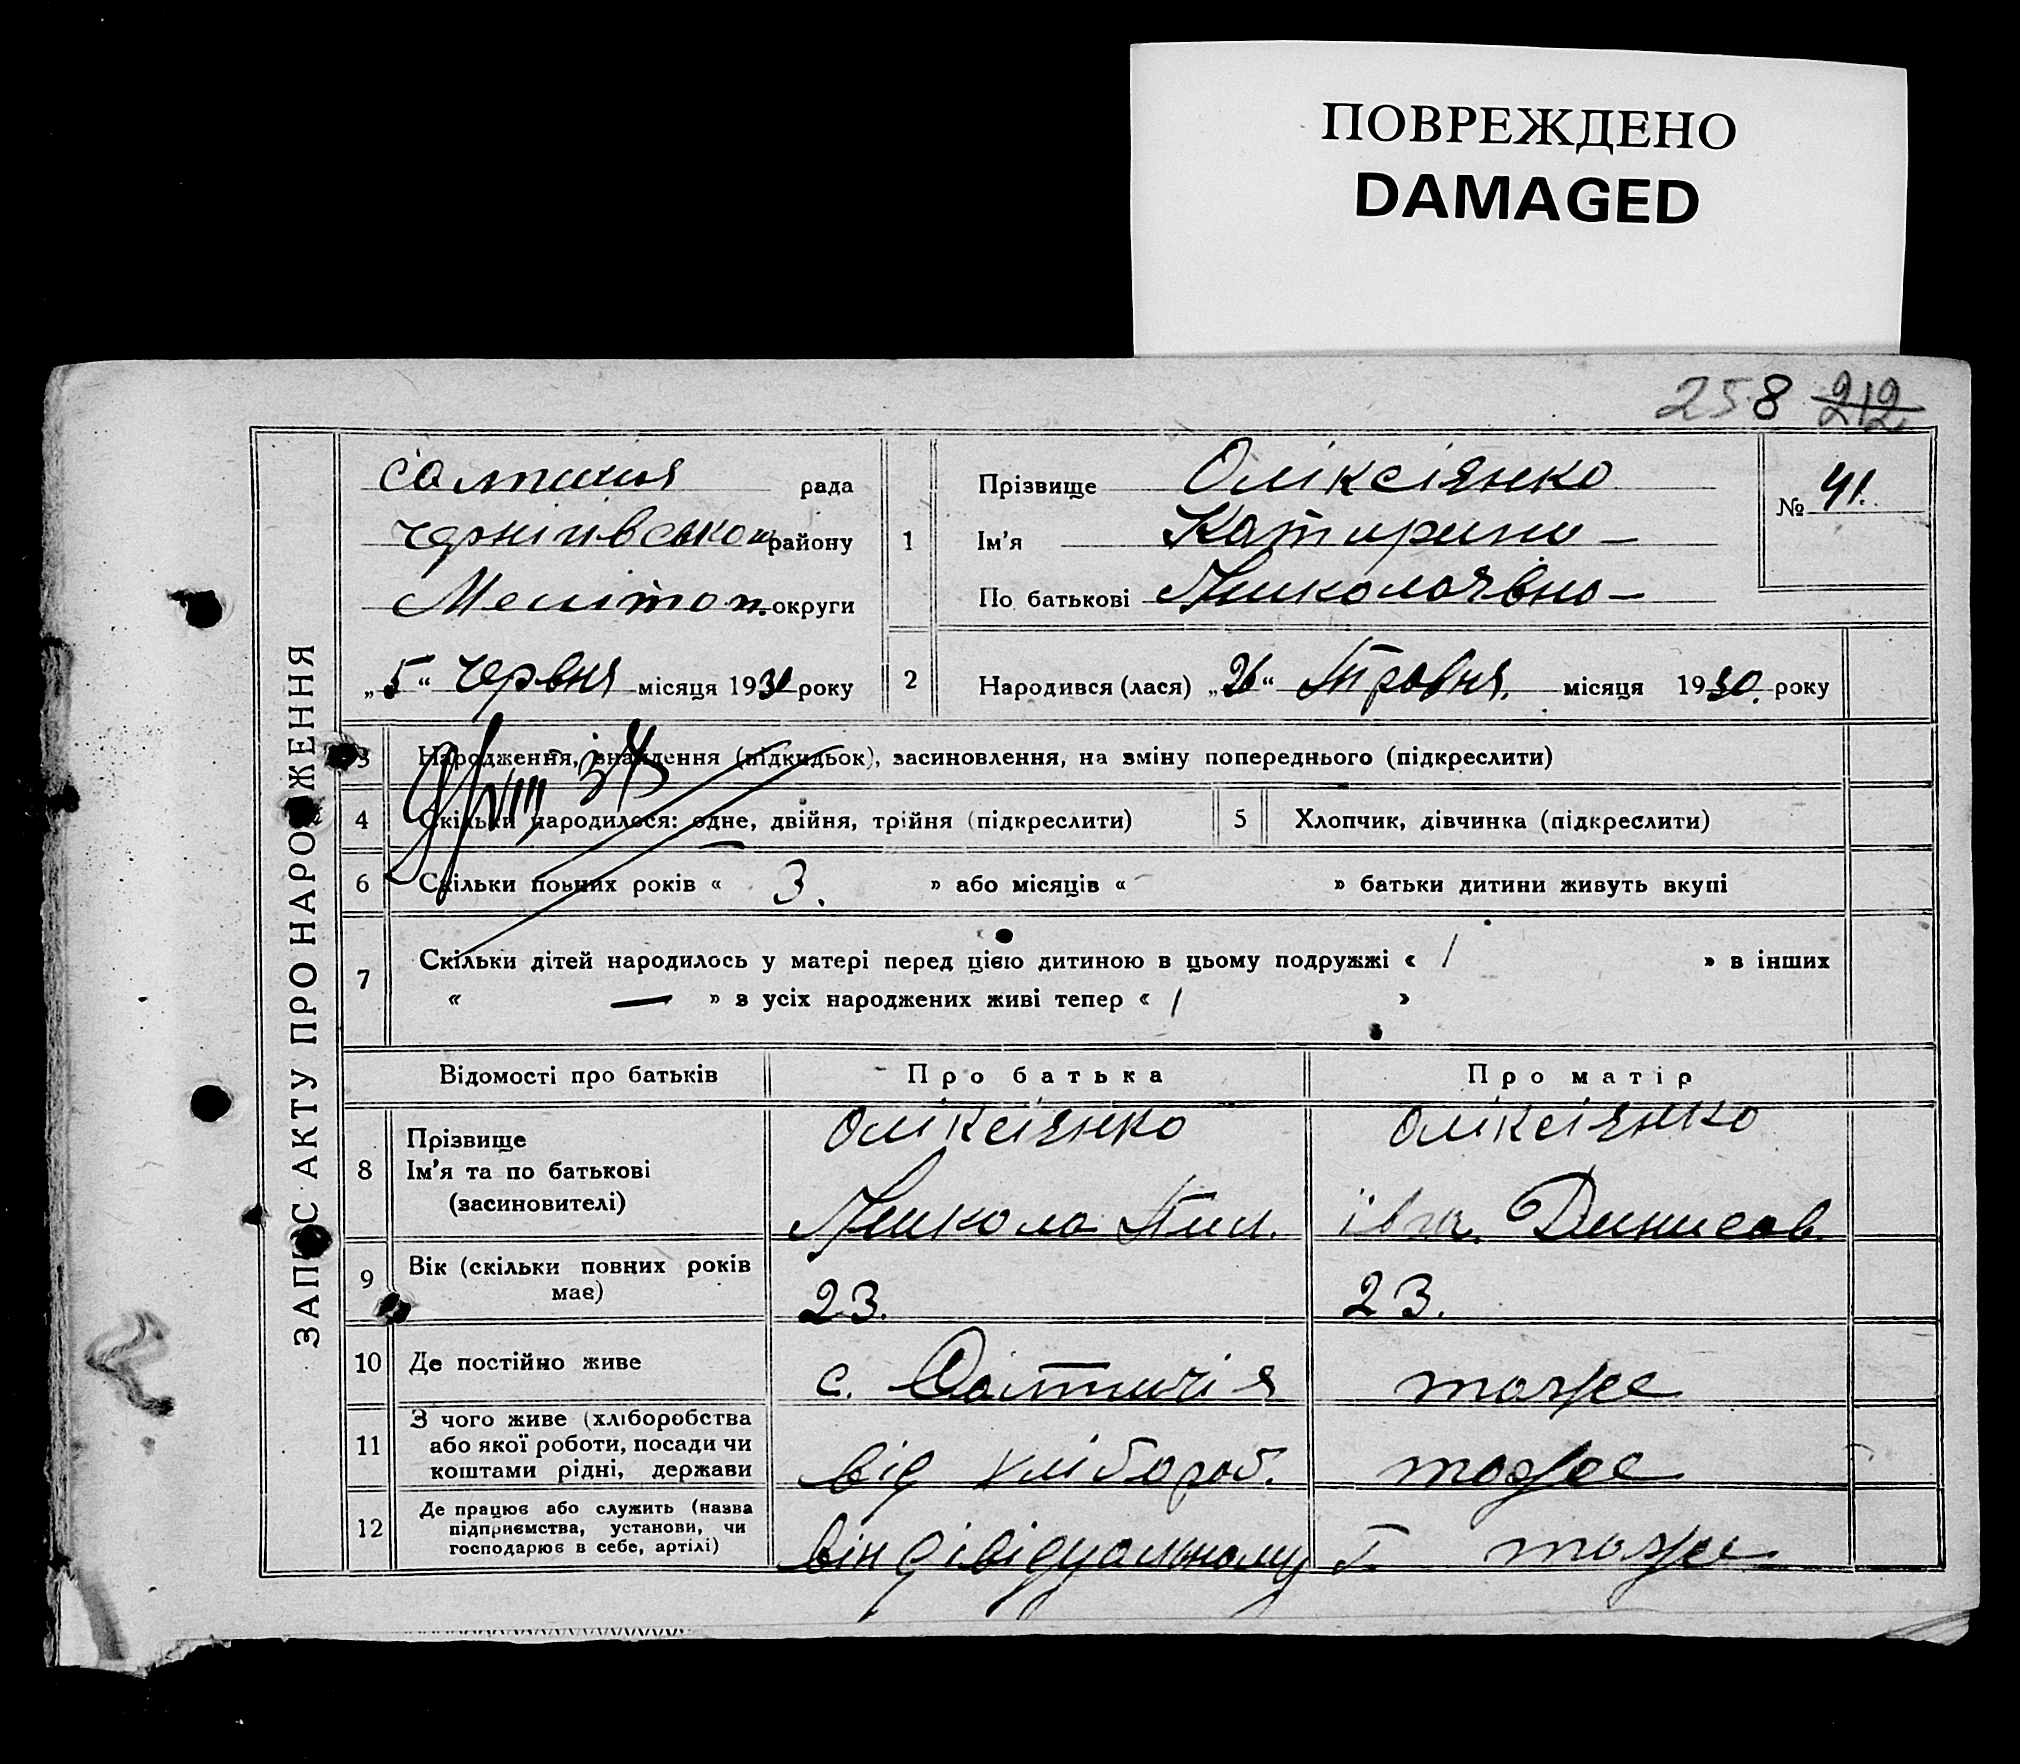 ПОВРЕЖДЕНО
DAMAGED
258 212
ЗАПИС АКТУ ПРО НАРОДЖЕННЯ
рада
району
Мелітоп. округи
„5“ Червня місяця 1931 року
1
Прізвище Оліксіянко
Ім’я Катирина –
По батькові Миколаявна –
№ 41.
2
Народився (лася) „26“ Травня. місяця 1930. року
3 Народження, знайдення (підкидьок), засиновлення, на зміну попереднього (підкреслити)
4 Скільки народилося: одне, двійня, трійня (підкреслити)
5 Хлопчик, дівчинка (підкреслити)
6 Скільки повних років « 3. » або місяців « » батьки дитини живуть вкупі
7 Скільки дітей народилось у матері перед цією дитиною в цьому подружжі « 1 » в інших
« — » з усіх народжених живі тепер « 1 »
Відомості про батьків Про батька Про матір
8 Прізвище
Ім’я та по батькові
(засиновителі)
Оліксіянко
Микола Пил.
Оліксіянко
Динисов.
9 Вік (скільки повних років
має)
23. 23.
10 Де постійно живе с. Солтичія тоже
11 З чого живе (хліборобства
або якої роботи, посади чи
коштами рідні, держави
від хлібороб. тоже
12 Де працює або служить (назва
підприємства, установи, чи
господарює в себе, артілі)
віндівідуальному г. тоже